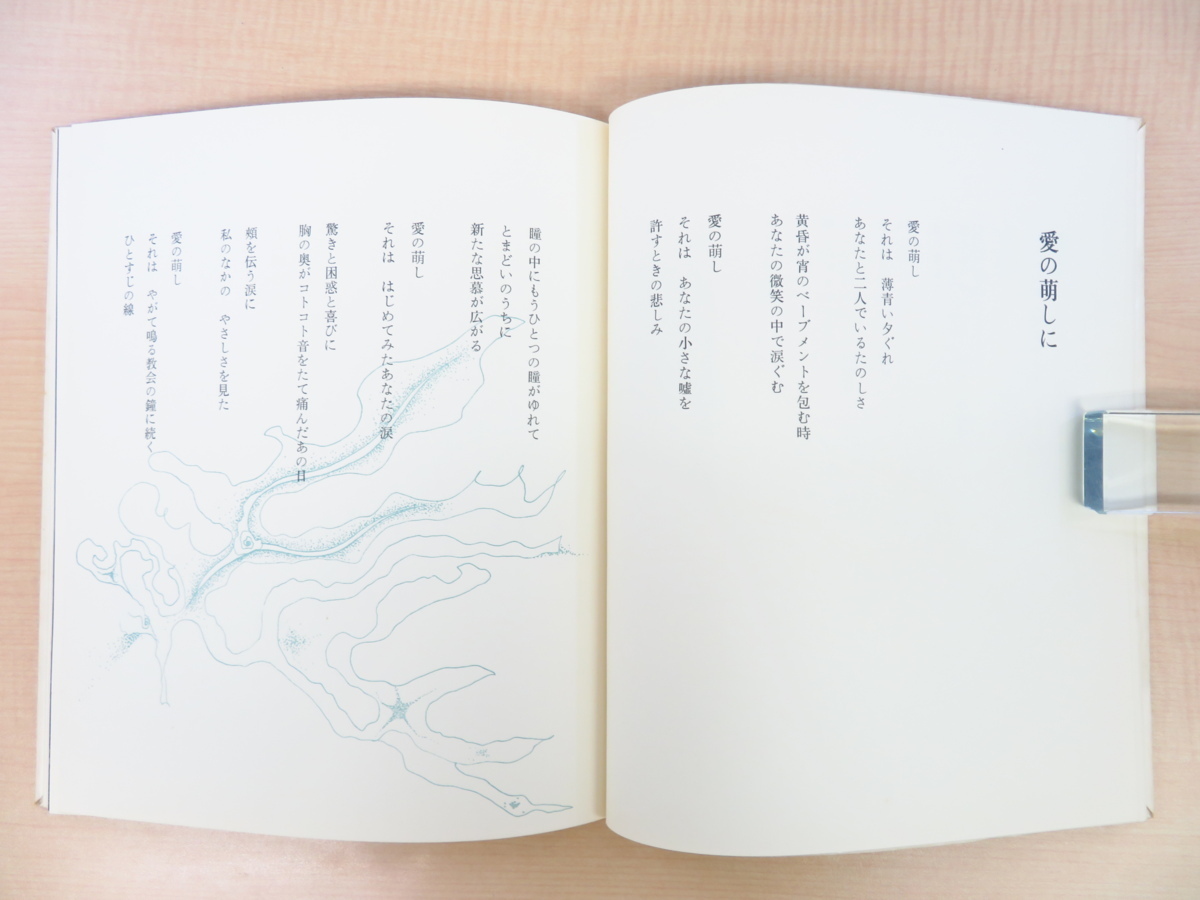 愛の萌しに
愛の萌し
それは　薄青い夕ぐれ
あなたと二人でいるたのしさ
黄昏が宵のペーブメントを包む時
あなたの微笑の中で涙ぐむ
愛の萌し
それは　あなたの小さな嘘を
許すときの悲しみ
瞳の中にもうひとつの瞳がゆれて
とまどいのうちに
新たな思慕が広がる
愛の萌し
それは　はじめてみたあなたの涙
驚きと困惑と喜びに
胸の奥がコトコト音をたて痛んだあの日
頬を伝う涙に
私のなかの　やさしさを見た
愛の萌し
それは　やがて鳴る教会の鐘に続く
ひとすじの線